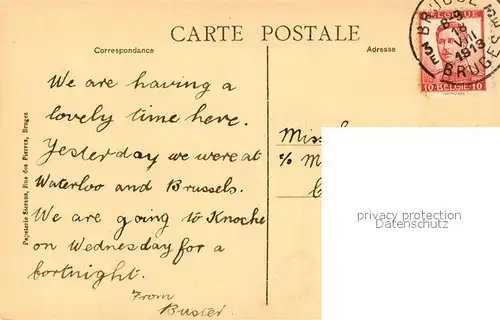 CARTE POSTALE
Correspondance
Adresse
BRUGGE
8-9
18
VIII
1913
BRUGES
BELGIQUE
10 BELGIE 10
We are having a
lovely time here.
Yesterday we were at
Waterloo and Brussels.
We are going to Knocke
on Wednesday for a
fortnight.
From
Buster.
Miss
c/o M
privacy protection
Datenschutz
Papeterie Sierens, Rue des Pierres, Bruges